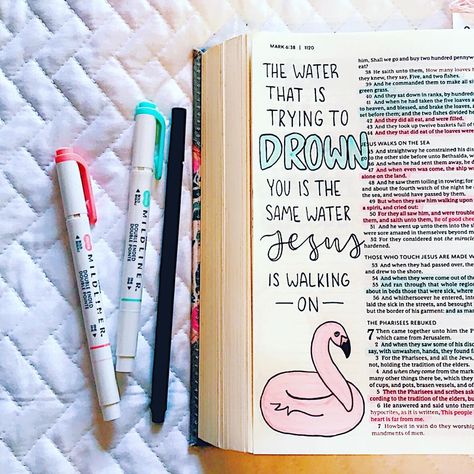 MARK 6:38 | 1120
THE WATER
THAT IS
TRYING TO
DROWN
YOU IS THE
SAME WATER
Jesus
IS WALKING
— ON —
him, Shall we go and buy two hundred pennyw
eat?
38 He saith unto them, How many loaves
they knew, they say, Five, and two fishes.
39 And he commanded them to make all si
green grass.
40 And they sat down in ranks, by hundred
41 And when he had taken the five loaves
to heaven, and blessed, and brake the loaves,
set before them; and the two fishes divided he
42 And they did all eat, and were filled.
43 And they took up twelve baskets full of t
44 And they that did eat of the loaves were
JESUS WALKS ON THE SEA
45 And straightway he constrained his disc
to the other side before unto Bethsaida, wh
46 And when he had sent them away, he
47 And when even was come, the ship wa
alone on the land.
48 And he saw them toiling in rowing; for
and about the fourth watch of the night he
the sea, and would have passed by them.
49 But when they saw him walking upon
a spirit, and cried out:
50 For they all saw him, and were troubled
them, and saith unto them, Be of good cheer
51 And he went up unto them into the sh
were sore amazed in themselves beyond m
52 For they considered not the miracle
hardened.
53 And when they had passed over, they
and drew to the shore.
54 And when they were come out of the
55 And ran through that whole region
about in beds those that were sick, where
56 And whithersoever he entered, into
laid the sick in the streets, and besought
but the border of his garment: and as man
THOSE WHO TOUCH JESUS ARE MADE W
THE PHARISEES REBUKED
7 Then came together unto him the P
which came from Jerusalem.
2 And when they saw some of his disc
say, with unwashen, hands, they found f
3 For the Pharisees, and all the Jews,
not, holding the tradition of the elders.
4 And when they come from the marke
many other things there be, which they
of cups, and pots, brasen vessels, and of
5 Then the Pharisees and scribes ask
cording to the tradition of the elders, but
6 He answered and said unto them,
hypocrites, as it is written, This people h
heart is far from me.
7 Howbeit in vain do they worship
mandments of men.
MILDLINER
DOUBLE ENDED
DOUBLE POINTS
MILDLINER
DOUBLE ENDED
DOUBLE POINTS